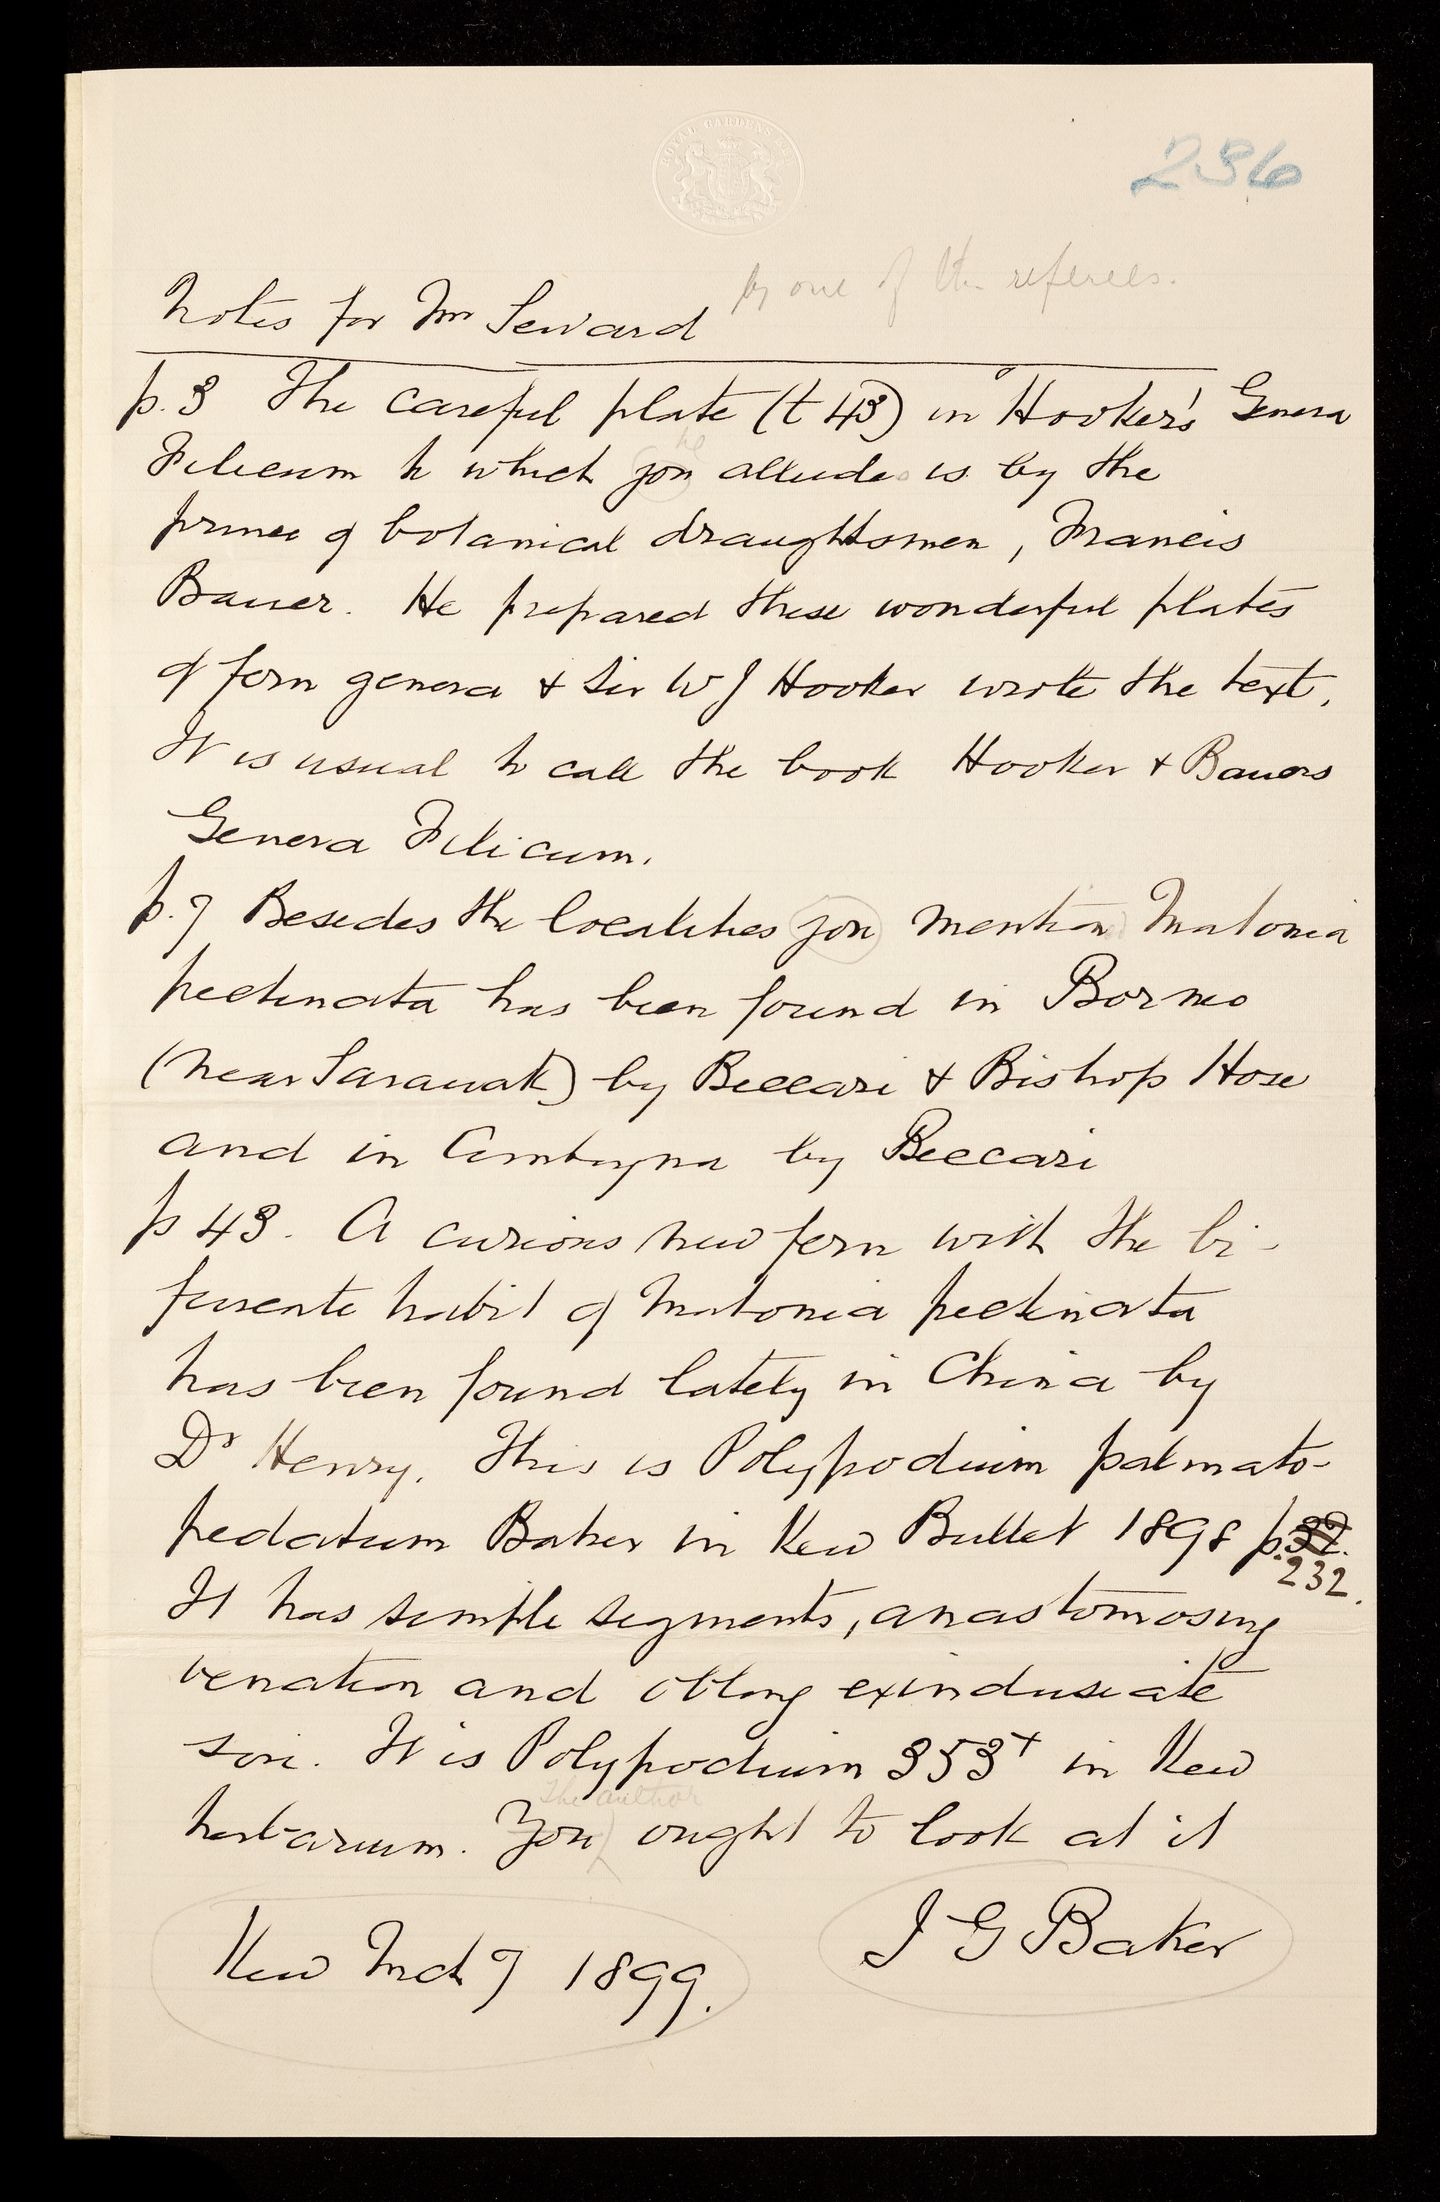 ROYAL GARDENS KEW
236
by one of the referees.
Notes for Mr Seward
p.3 The careful plate (t 43) in Hooker's Genera
he
Filicum to which you alludes is by the
prince of botanical draughtsmen, Francis
Bauer. He prepared these wonderful plates
of fern genera & Sir W J Hooker wrote the text.
It is usual to call the book Hooker & Bauers
Genera Filicum.
p.7 Besides the localities you mention Matonia
pectinata has been found in Borneo
(near Sarawak) by Beccari & Bishop Hose
and in Amboyna by Beccari
p 43. A curious new fern with the bi-
furcate habit of Matonia pectinata
has been found lately in China by
Dr Henry. This is Polypodium palmato-
pedatum Baker in Kew Bullet 1898 p. 32.
232.
It has simple segments, anastomosing
venation and oblong exindusiate
sori. It is Polypodium 353+ in Kew
the author
herbarium. You ought to look at it
J G Baker
Kew Mch 7 1899.